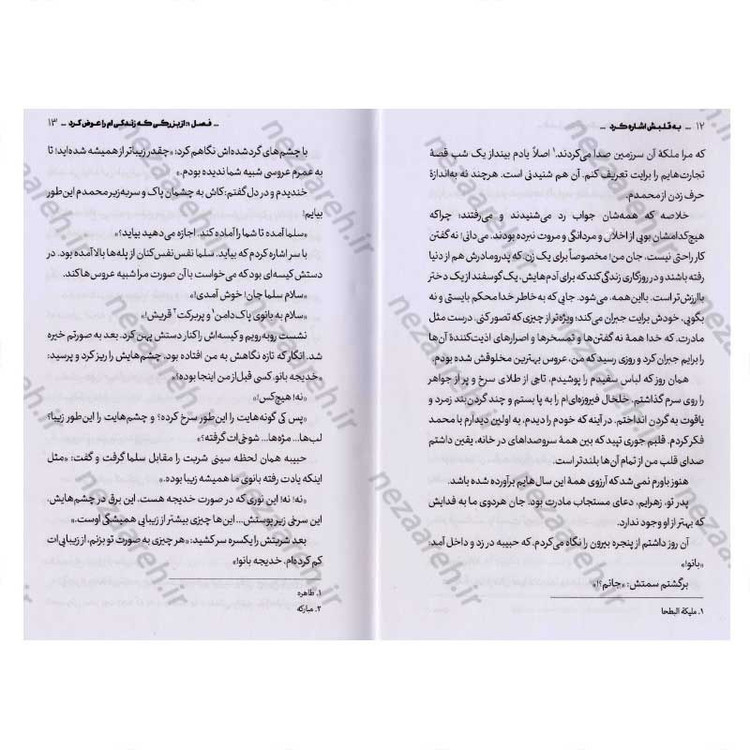 ۱۲ ــ به قلبش اشاره کرد ــ
که مرا ملکهٔ آن سرزمین صدا می‌کردند.۱ اصلاً یادم بینداز یک شب قصهٔ
تجارت‌هایم را برایت تعریف کنم. آن هم شنیدنی است. هرچند نه به‌اندازهٔ
حرف زدن از محمدم.
خلاصه که همه‌شان جواب رد می‌شنیدند و می‌رفتند؛ چراکه
هیچ‌کدامشان بویی از اخلاق و مردانگی و مروت نبرده بودند. می‌دانی! نه گفتن
کار راحتی نیست، جان من! مخصوصاً برای یک زن که پدرومادرش هم از دنیا
رفته باشند و در روزگاری زندگی کند که برای آدم‌هایش، یک گوسفند از یک دختر
باارزش‌تر است. بااین‌همه، می‌شود. جایی که به خاطر خدا محکم بایستی و نه
بگویی، خودش برایت جبران می‌کند؛ ویژه‌تر از چیزی که تصور کنی. درست مثل
مادرت، که خدا همهٔ نه گفتن‌ها و تمسخرها و اصرارهای اذیت‌کنندهٔ آن‌ها
را برایم جبران کرد و روزی رسید که من، عروس بهترین مخلوقش شده بودم.
همان روز که لباس سفیدم را پوشیدم، تاجی از طلای سرخ و پر از جواهر
را روی سرم گذاشتم. خلخال فیروزه‌ای‌ام را به پا بستم و چند گردن‌بند زمرد و
یاقوت به گردن انداختم. در آینه که خودم را دیدم، به اولین دیدارم با محمد
فکر کردم. قلبم جوری تپید که بین همهٔ سروصداهای در خانه، یقین داشتم
صدای قلب من از تمام آن‌ها بلندتر است.
هنوز باورم نمی‌شد که آرزوی همهٔ این سال‌هایم برآورده شده باشد.
پدر تو، زهرایم، دعای مستجاب مادرت بود. جان هردوی ما به فدایش
که بهتر از او وجود ندارد.
آن روز داشتم از پنجره بیرون را نگاه می‌کردم، که حبیبه در زد و داخل آمد:
«بانو!»
برگشتم سمتش: «جانم؟!»
۱. ملیکة البطحا
ــ فصل ۱: از بزرگی که زندگی‌ام را عوض کرد ــ ۱۳
با چشم‌های گردشده‌اش نگاهم کرد: «چقدر زیباتر از همیشه شده‌اید! تا
به عمرم عروسی شبیه شما ندیده بودم.»
خندیدم و در دل گفتم: کاش به چشمان پاک و سربه‌زیر محمدم این‌طور
بیایم!
«سلما آمده تا شما را آماده کند. اجازه می‌دهید بیاید؟»
با سر اشاره کردم که بیاید. سلما نفس نفس‌کنان از پله‌ها بالا آمده بود. در
دستش کیسه‌ای بود که می‌خواست با آن صورت مرا شبیه عروس‌ها کند.
«سلام سلما جان! خوش آمدی!»
«سلام به بانوی پاک‌دامن۱ و پربرکت۲ قریش!»
نشست روبه‌رویم و کیسه‌اش را کنار دستش پهن کرد. بعد به صورتم خیره
شد. انگار که تازه نگاهش به من افتاده بود. چشم‌هایش را ریز کرد و پرسید:
«خدیجه بانو، کسی قبل از من اینجا بوده؟!»
«نه! هیچ‌کس!»
«پس کی گونه‌هایت را این‌طور سرخ کرده؟ و چشم‌هایت را این‌طور زیبا؟
لب‌ها... مژه‌ها... شوخی‌ات گرفته؟»
حبیبه همان لحظه سینی شربت را مقابل سلما گرفت و گفت: «مثل
اینکه یادت رفته بانوی ما همیشه زیبا بوده.»
«نه؛ نه! این نوری که در صورت خدیجه هست. این برق در چشم‌هایش،
این سرخی زیر پوستش... این‌ها چیزی بیشتر از زیبایی همیشگی اوست.»
بعد شربتش را یکسره سر کشید: «هر چیزی به صورت تو بزنم، از زیبایی‌ات
کم کرده‌ام، خدیجه بانو!»
۱. طاهره
۲. مبارکه
nezaareh.ir